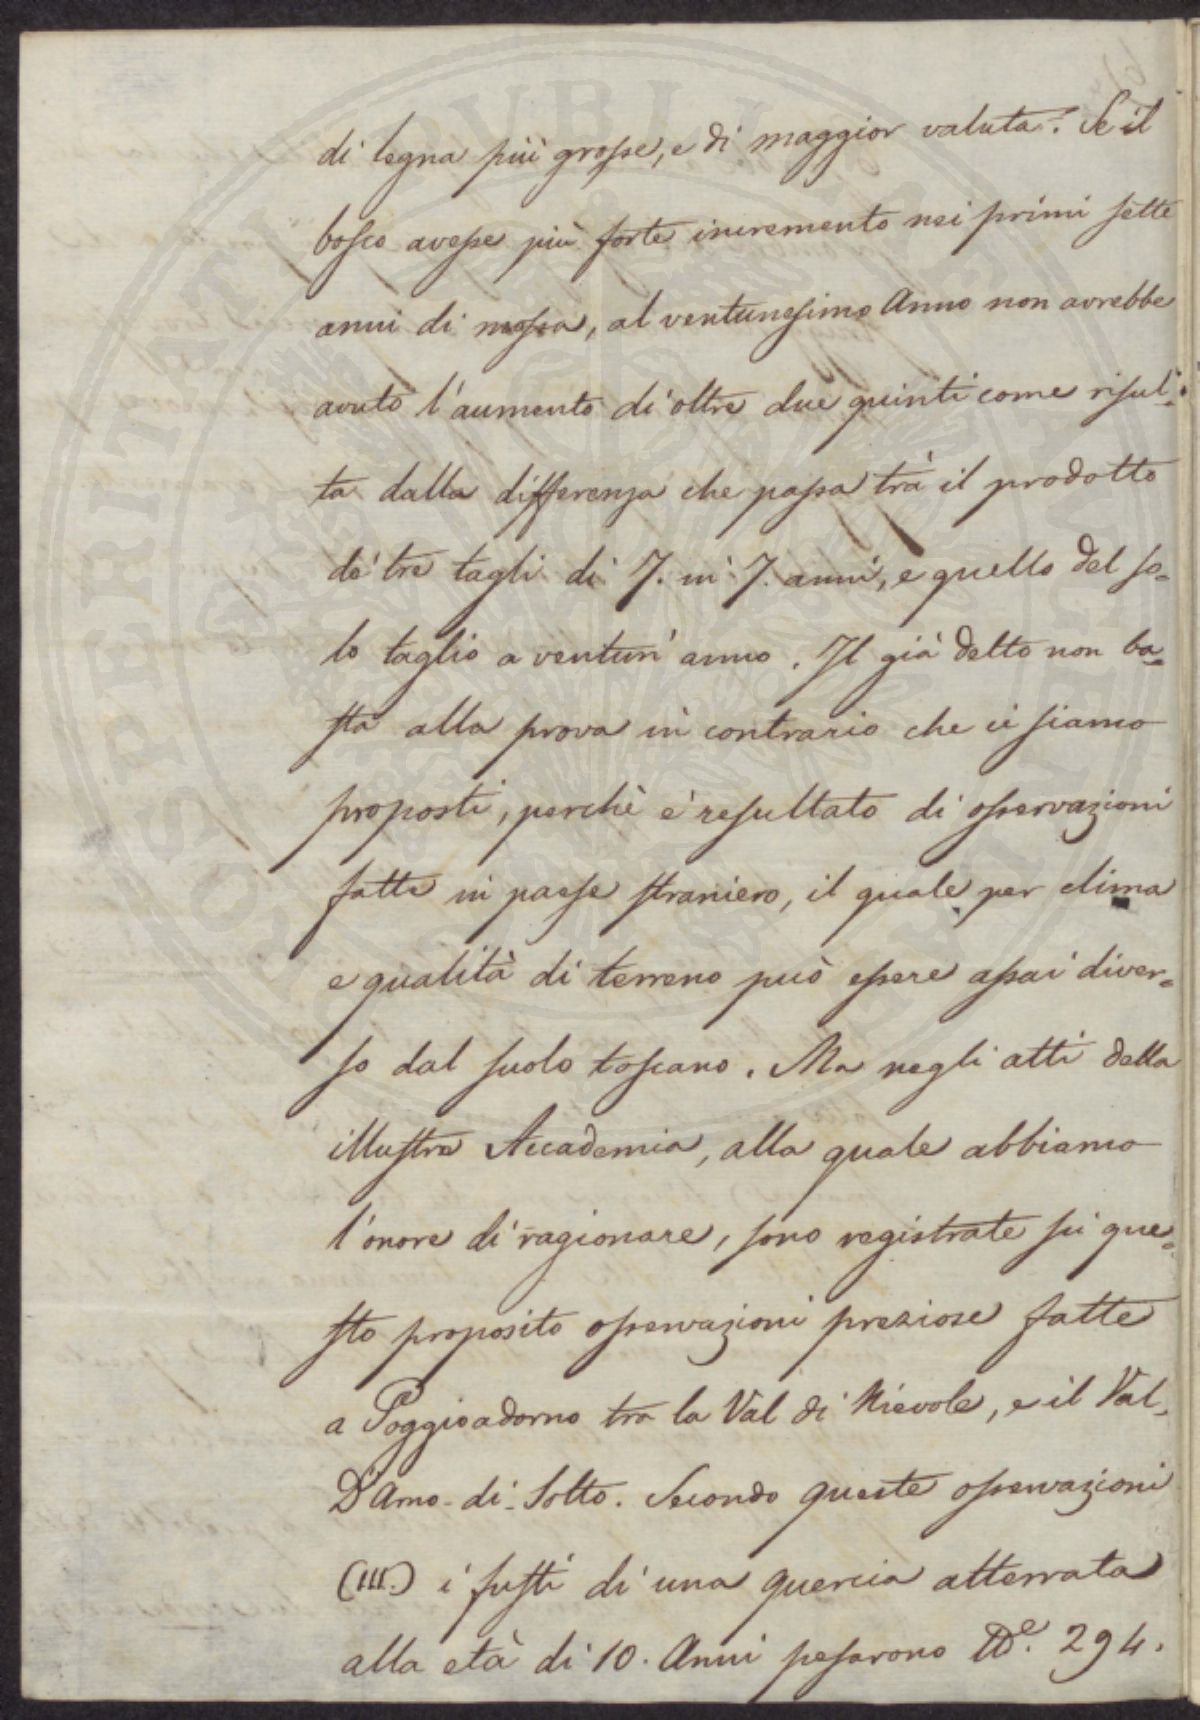 di legna più grosse, e di maggior valuta. Se il
bosco avesse più forte incremento nei primi sette
anni di messa, al ventunesimo Anno non avrebbe
avuto l'aumento di oltre due quinti come risul-
ta dalla differenza che passa trà il prodotto
de' tre tagli di 7. in 7. anni, e quello del so-
lo taglio a ventun' anno. Il già detto non ba-
sta alla prova in contrario che ci siamo
proposti, perchè è resultato di osservazioni
fatte in paese straniero, il quale per clima
e qualità di terreno può essere assai diver-
so dal suolo toscano. Ma negli atti della
illustre Accademia, alla quale abbiamo
l'onore di ragionare, sono registrate su que-
sto proposito osservazioni preziose fatte
a Poggioadorno tra la Val di Nievole, e il Val-
D'Arno-di-Sotto. Secondo queste osservazioni
(III.) i fusti di una quercia atterrata
alla età di 10. Anni pesarono 294.